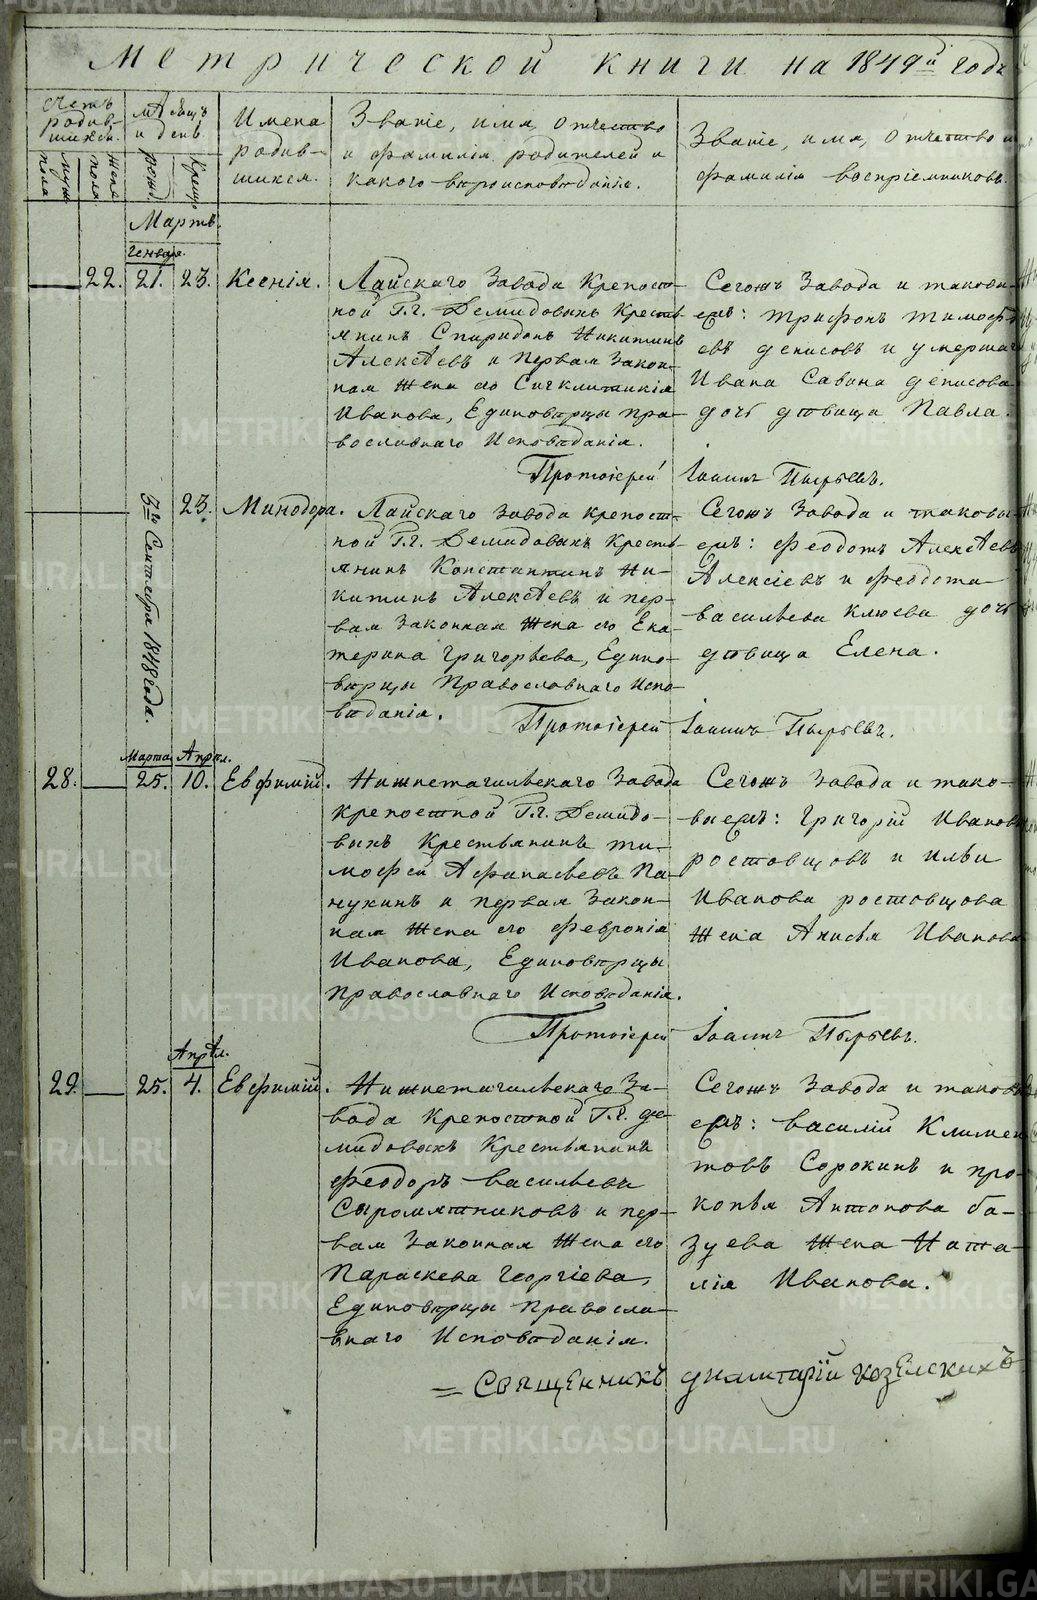 Метрической книги на 1849й годъ
Счетъ родив-шихся.
муж. пола
жен. пола
Мѣсяцъ и день
рожд.
крещ.
Имена родив-шихся.
Званіе, имя, отчество
и фамилія родителей и
какого вѣроисповѣданія.
Званіе, имя, отчество и
фамилія воспріемниковъ.
Мартъ.
Генваря.
22. 21. 23. Ксенія.
Лайскаго Завода Крепост-
ной Г.г. Демидовыхъ Кресть-
янинъ Спиридонъ Никитинъ
Алексѣевъ и первая Закон-
ная Жена его Сигклитикія
Иванова, Единовѣрцы Пра-
вославнаго Исповѣданія.
Сегожъ Завода и таковы-
ежъ: Трифонъ Тимофѣ-
евъ Денисовъ и умершаго
Ивана Савина Денисова
дочь дѣвица Павла.
Протоіерей Іоаннъ Пырьевъ.
5го Сентября 1848 года.
23. Минодора.
Лайскаго Завода крепост-
ной Г.г. Демидовыхъ Кресть-
янинъ Константинъ Ни-
китинъ Алексѣевъ и пер-
вая Законная Жена его Ека-
терина Григорьева, Едино-
вѣрцы Православнаго Испо-
вѣданія.
Сегожъ Завода и таковы-
ежъ: Феодотъ Алексѣевъ
Алексіевъ и Феодота
Васильева Клюева дочь
дѣвица Елена.
Протоіерей Іоаннъ Пырьевъ.
Марта Апрѣл.
28. 25. 10. Евфимій.
Нижнетагильскаго Завода
Крепостной Г.г. Демидо-
выхъ Крестьянинъ Ти-
мофей Афанасьевъ Па-
нукинъ и первая Закон-
ная Жена его Февронія
Иванова, Единовѣрцы
Православнаго Исповѣданія.
Сегожъ Завода и тако-
выежъ: Григорій Ивановъ
Ростовщовъ и Ильи
Иванова Ростовщова
Жена Анисья Иванова
Протоіерей Іоаннъ Пырьевъ.
Апрѣл.
29. 25. 4. Евфимій.
Нижнетагильскаго За-
вода Крепостной Г.г. Де-
мидовыхъ Крестьянинъ
Феодоръ Васильевъ
Сыромятниковъ и пер-
вая Законная Жена его
Параскева Георгіева,
Единовѣрцы Правосла-
внаго Исповѣданія.
Сегожъ Завода и таковы-
ежъ: Василій Климен-
товъ Сорокинъ и Про-
копья Антонова Ба-
зуева Жена Ната-
лія Иванова.
Священникъ Димитрій Козельскихъ
METRIKI.GASO-URAL.RU